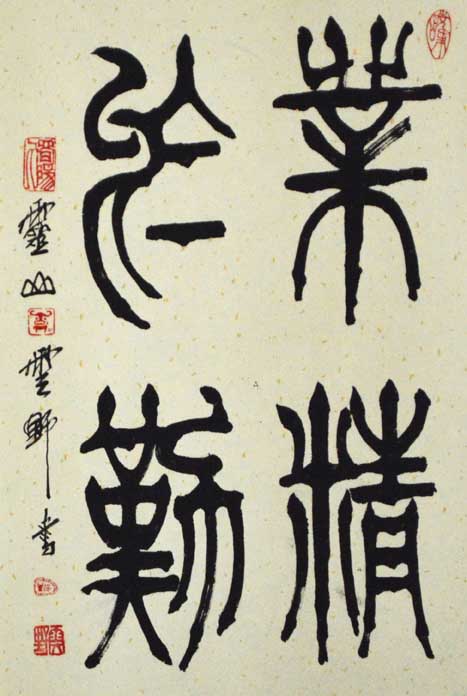 業精
於勤
靈山雲野書